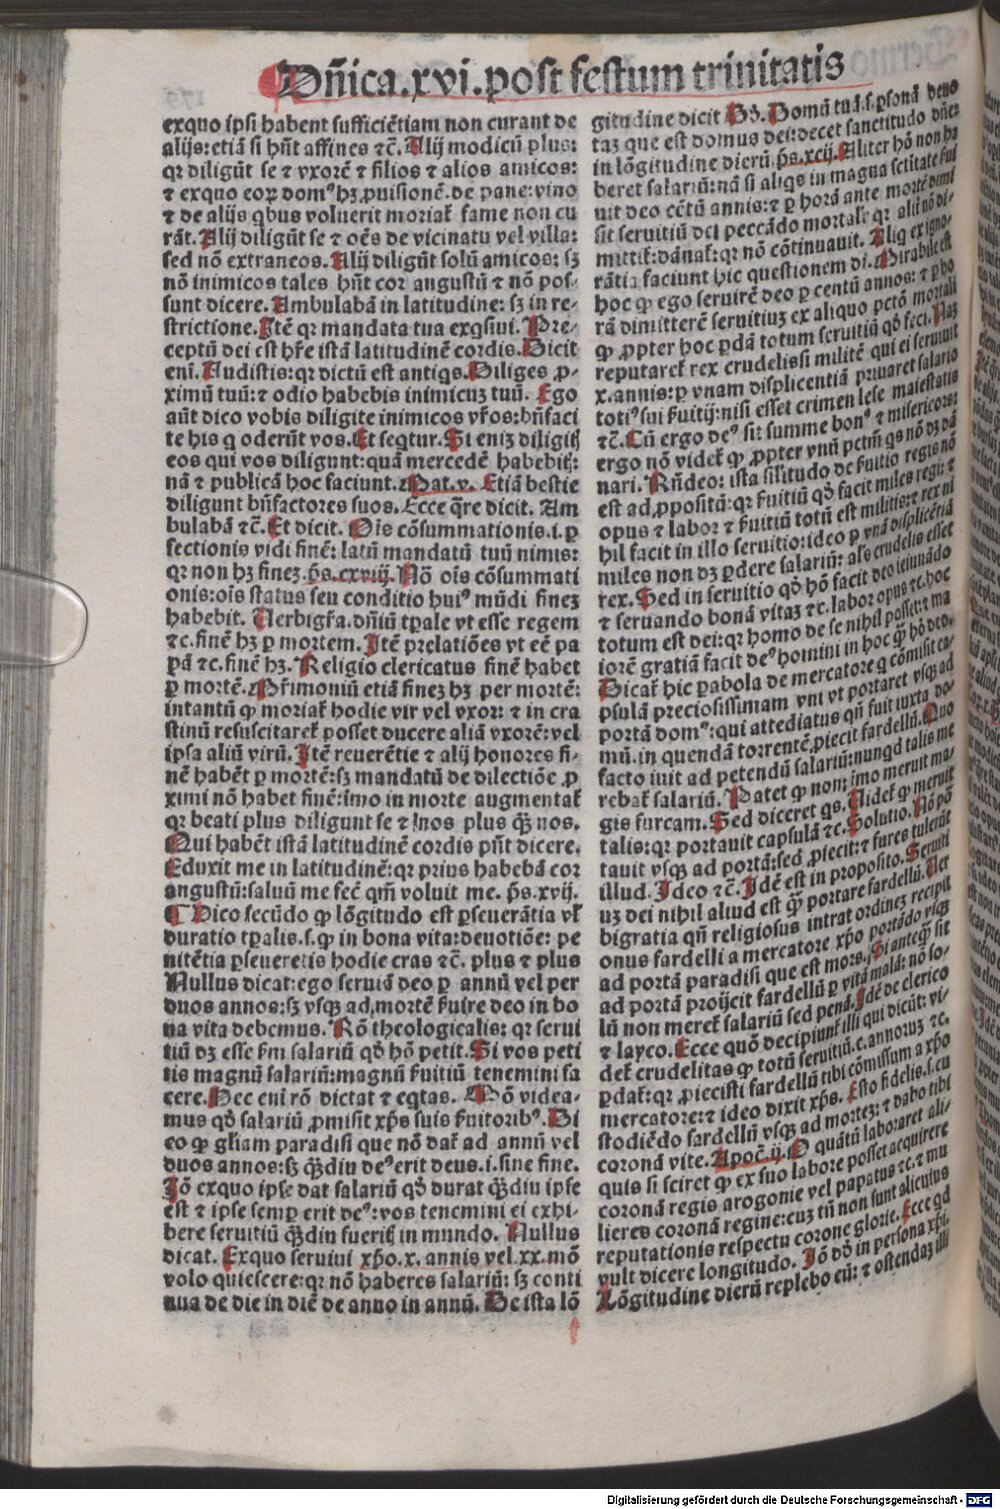 Dn̄ica.xvi.post festum trinitatis
exquo ipsi habent sufficiētiam non curant de
alijs: etiā si hn̄t affines ⁊c̄. Alij modicū plus:
qr diligūt se ⁊ vxorē ⁊ filios ⁊ alios amicos:
⁊ exquo eoꝝ domꝰ hꝫ ꝓuisionē. de pane: vino
⁊ de alijs qbus voluerit moriat̄ fame non cu
rāt. Alij diligūt se ⁊ oēs de vicinatu vel villa:
sed nō extraneos. Alij diligūt solū amicos: sꝫ
nō inimicos tales hn̄t cor angustū ⁊ nō pos-
sunt dicere. Ambulabā in latitudine: sꝫ in re-
strictione. Itē qr mandata tua exqsiui. Pre-
ceptū dei est hr̄e istā latitudinē cordis. Dicit
eni. Audistis: qr dictū est antiqs. Diliges ꝓ-
ximū tuū: ⁊ odio habebis inimicuꝫ tuū. Ego
aūt dico vobis diligite inimicos vr̄os: bn̄faci
te his q oderūt vos. Et seqtur. Si eniꝫ diligit̄
eos qui vos diligunt: quā mercedē habebit̄:
nā ⁊ publicā hoc faciunt. Mat. v. Etiā bestie
diligunt bn̄factores suos. Ecce q̄re dicit. Am
bulabā ⁊c̄. Et dicit. Oīs cōsummationis .i. ꝑ
fectionis vidi finē: latū mandatū tuū nimis:
qr non hꝫ fineꝫ. p̄s. cxviij. Nō oīs cōsummati
onis: oīs status seu conditio huiꝰ mūdi fineꝫ
habebit. Uerbigr̄a. dn̄iū tp̄ale vt esse regem
⁊c. finē hꝫ ꝑ mortem. Itē prelatiōes vt eē pa
pā ⁊c. finē hꝫ. Religio clericatus finē habet
ꝑ mortē. Mr̄imoniū etiā fineꝫ hꝫ per mortē:
intantū ꝙ moriat̄ hodie vir vel vxor: ⁊ in cra
stinū resuscitaret̄ posset ducere aliā vxorē: vel
ipsa aliū virū. Itē reuerētie ⁊ alij honores fi-
nē habēt ꝑ mortē: sꝫ mandatū de dilectiōe ꝓ
ximi nō habet finē: imo in morte augmentat̄
qr beati plus diligunt se ⁊ nos plus q̄ꝫ nos.
Qui habēt istā latitudinē cordis pn̄t dicere.
Eduxit me in latitudinē: qr prius habebā cor
angustū: saluū me fec̄ qm̄ voluit me. p̄s. xvij.
¶ Dico secūdo ꝙ lōgitudo est ꝑseuerātia vl̄
duratio tp̄alis. s. ꝙ in bona vita: deuotiōe: pe
nitētia ꝑseueretis hodie cras ⁊c̄. plus ⁊ plus
Nullus dicat: ego seruiā deo ꝑ annū vel per
duos annos: sꝫ vsqꝫ ad mortē ẜuire deo in bo
na vita debemus. Rō theologicalis: qr serui
tiū dꝫ esse ẜm salariū qd̄ hō petit. Si vos peti
tis magnū salariū: magnū ẜuitiū tenemini fa
cere. Hec eni rō dictat ⁊ eqtas. Mō videa-
mus qd̄ salariū ꝓmisit xp̄s suis ẜuitoribꝰ. Di
co ꝙ gl̄iam paradisi que nō dat̄ ad annū vel
duos annos: sꝫ q̄ꝫdiu deꝰ erit deus. i. sine fine.
Iō exquo ipse dat salariū qd̄ durat q̄ꝫdiu ipse
est ⁊ ipse semꝑ erit deꝰ: vos tenemini ei exhi-
bere seruitiū q̄ꝫdiu fuerit̄ in mundo. Nullus
dicat. Exquo seruiui xp̄o. x. annis vel. xx. mō
volo quiescere: qr nō haberes salariū: sꝫ conti
nua de die in diē de anno in annū. De ista lō
gitudine dicit Dd̄. Domū tuā. s. ꝑsonā deuo
taꝫ que est domus dei: decet sanctitudo dn̄e:
in lōgitudine dierū p̄s. xcij. Aliter hō non ha
beret salariū: nā si aliqs in magna sctitate fui
uit deo cētū annis: ⁊ ꝑ horā ante mortē dimi
sit seruitiū dei peccādo mortalr̄ qr aliū nō di-
mittit̄: dānat̄: qr nō cōtinuauit. Aliq ex igno-
rātia faciunt hic questionem di. Mirabile est
hoc ꝙ ego seruirē deo ꝑ centū annos: ⁊ ꝑ ho
rā dimitterē seruitiuꝫ ex aliquo pctō mortali
ꝙ ꝓpter hoc ꝑdā totum seruitiū qd̄ feci. Naꝫ
reputaret̄ rex crudelissi militē qui ei seruiuit
x. annis: ꝑ vnam displicentiā priuaret salario
totiꝰ sui ẜuitij: nisi esset crimen lese maiestatis
⁊c̄. Cū ergo deꝰ sit summe bonꝰ ⁊ misericors:
ergo nō videt̄ ꝙ ꝓpter vnū pctm̄ qs nō dꝫ dā
nari. Rn̄deo: ista sil̄itudo de ẜuitio regis nō
est ad ꝓpositū: qr ẜuitiū qd̄ facit miles regi: ⁊
opus ⁊ labor ⁊ ẜuitiū totū est militis: ⁊ rex ni
hil facit in illo seruitio: ideo ꝑ vnā displicētiā
miles non dꝫ ꝑdere salariū: als crudelis esset
rex. Sed in seruitio qd̄ hō facit deo ieiunādo
⁊ seruando bonā vitaꝫ ⁊c. labor opus ⁊c. hoc
totum est dei: qr homo de se nihil posset: ⁊ ma
iorē gratiā facit deꝰ homini in hoc ꝙ hō deo.
Dicat̄ hic ꝑabola de mercatore q cōmisit ca-
psulā preciosissimam vni vt portaret vsqꝫ ad
portā domꝰ: qui attediatus qn̄ fuit iuxta do-
mū. in quendā torrentē ꝓiecit fardellū. Quo
facto iuit ad petendū salariū: nunqd talis me
rebat̄ salariū. Patet ꝙ non: imo meruit ma-
gis furcam. Sed diceret qs. Uidet̄ ꝙ meruit
talis: qr portauit capsulā ⁊c. Solutio. Nō poͬ
tauit vsqꝫ ad portā: sed ꝓiecit: ⁊ fures tulerūt
illud. Ideo ⁊c̄. Idē est in proposito. Seruiti
uꝫ dei nihil aliud est q̄ꝫ portare fardellū. Uer
bigratia qn̄ religiosus intrat ordineꝫ recipit
onus fardelli a mercatore xp̄o portādo vsqꝫ
ad portā paradisi que est mors. Si anteqꝫ sit
ad portā proijcit fardellū ꝑ vitā malā: nō so-
lū non meret̄ salariū sed penā. Idē de clerico
⁊ layco. Ecce quō decipiunt̄ illi qui dicūt: vi-
det̄ crudelitas ꝙ totū seruitiū. c. annoruꝫ ⁊c.
ꝑdat̄: qr ꝓiecisti fardellū tibi cōmissum a xp̄o
mercatore: ⁊ ideo dixit xp̄s. Esto fidelis. s. cu
stodiēdo fardellū vsqꝫ ad morteꝫ: ⁊ dabo tibi
coronā vite. Apoc̄. ij. O quātū laboraret ali-
quis si sciret ꝙ ex suo labore posset acquirere
coronā regis arogonie vel papatus ⁊c. ⁊ mu
lieres coronā regine: cuꝫ tn̄ non sunt alicuius
reputationis respectu corone glorie. Ecce qd
vult dicere longitudo. Iō dd̄ in persona xp̄i.
Lōgitudine dierū replebo eū: ⁊ ostendaꝫ illi
Digitalisierung gefördert durch die Deutsche Forschungsgemeinschaft - DFG